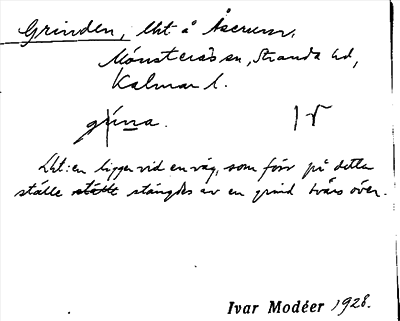 Grinden, lht å Åserum,
Mönsterås sn, Stranda hd,
Kalmar l.
grina. 1 v
Lht:en ligger vid en väg, som förr på detta
ställe ställt stängdes av en grind tvärs över.
Ivar Modéer 1928.